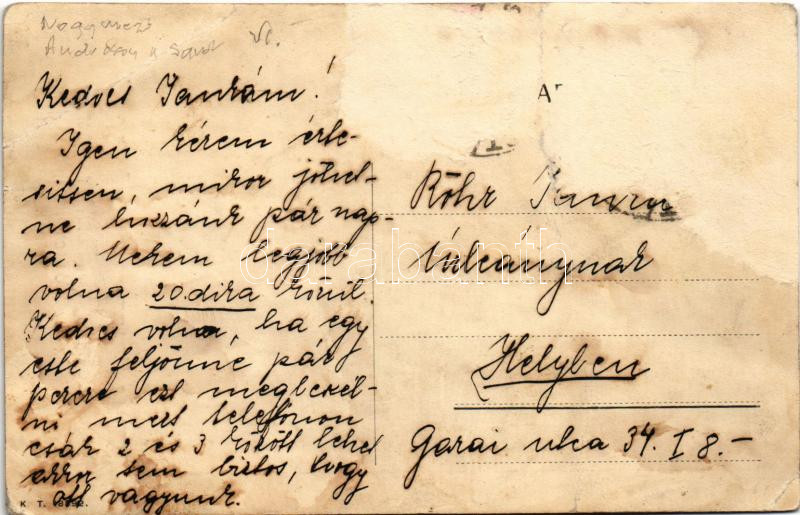 Kedves Jankám!
Igen kérem érte-
sitsen, mikor jöhet-
ne hozzánk pár nap-
ra. Nekem legjobb
volna 20.dika körül.
Kedves volna, ha egy
este feljönne pár
percre ezt megbeszél-
ni mert telefonon
csak 2 és 3 között lehet
akkor sem biztos, hogy
ott vagyunk.
K. T.
Röhr Janka
úrleánynak
Helyben
Garai utca 34. I 8.-
darabanth